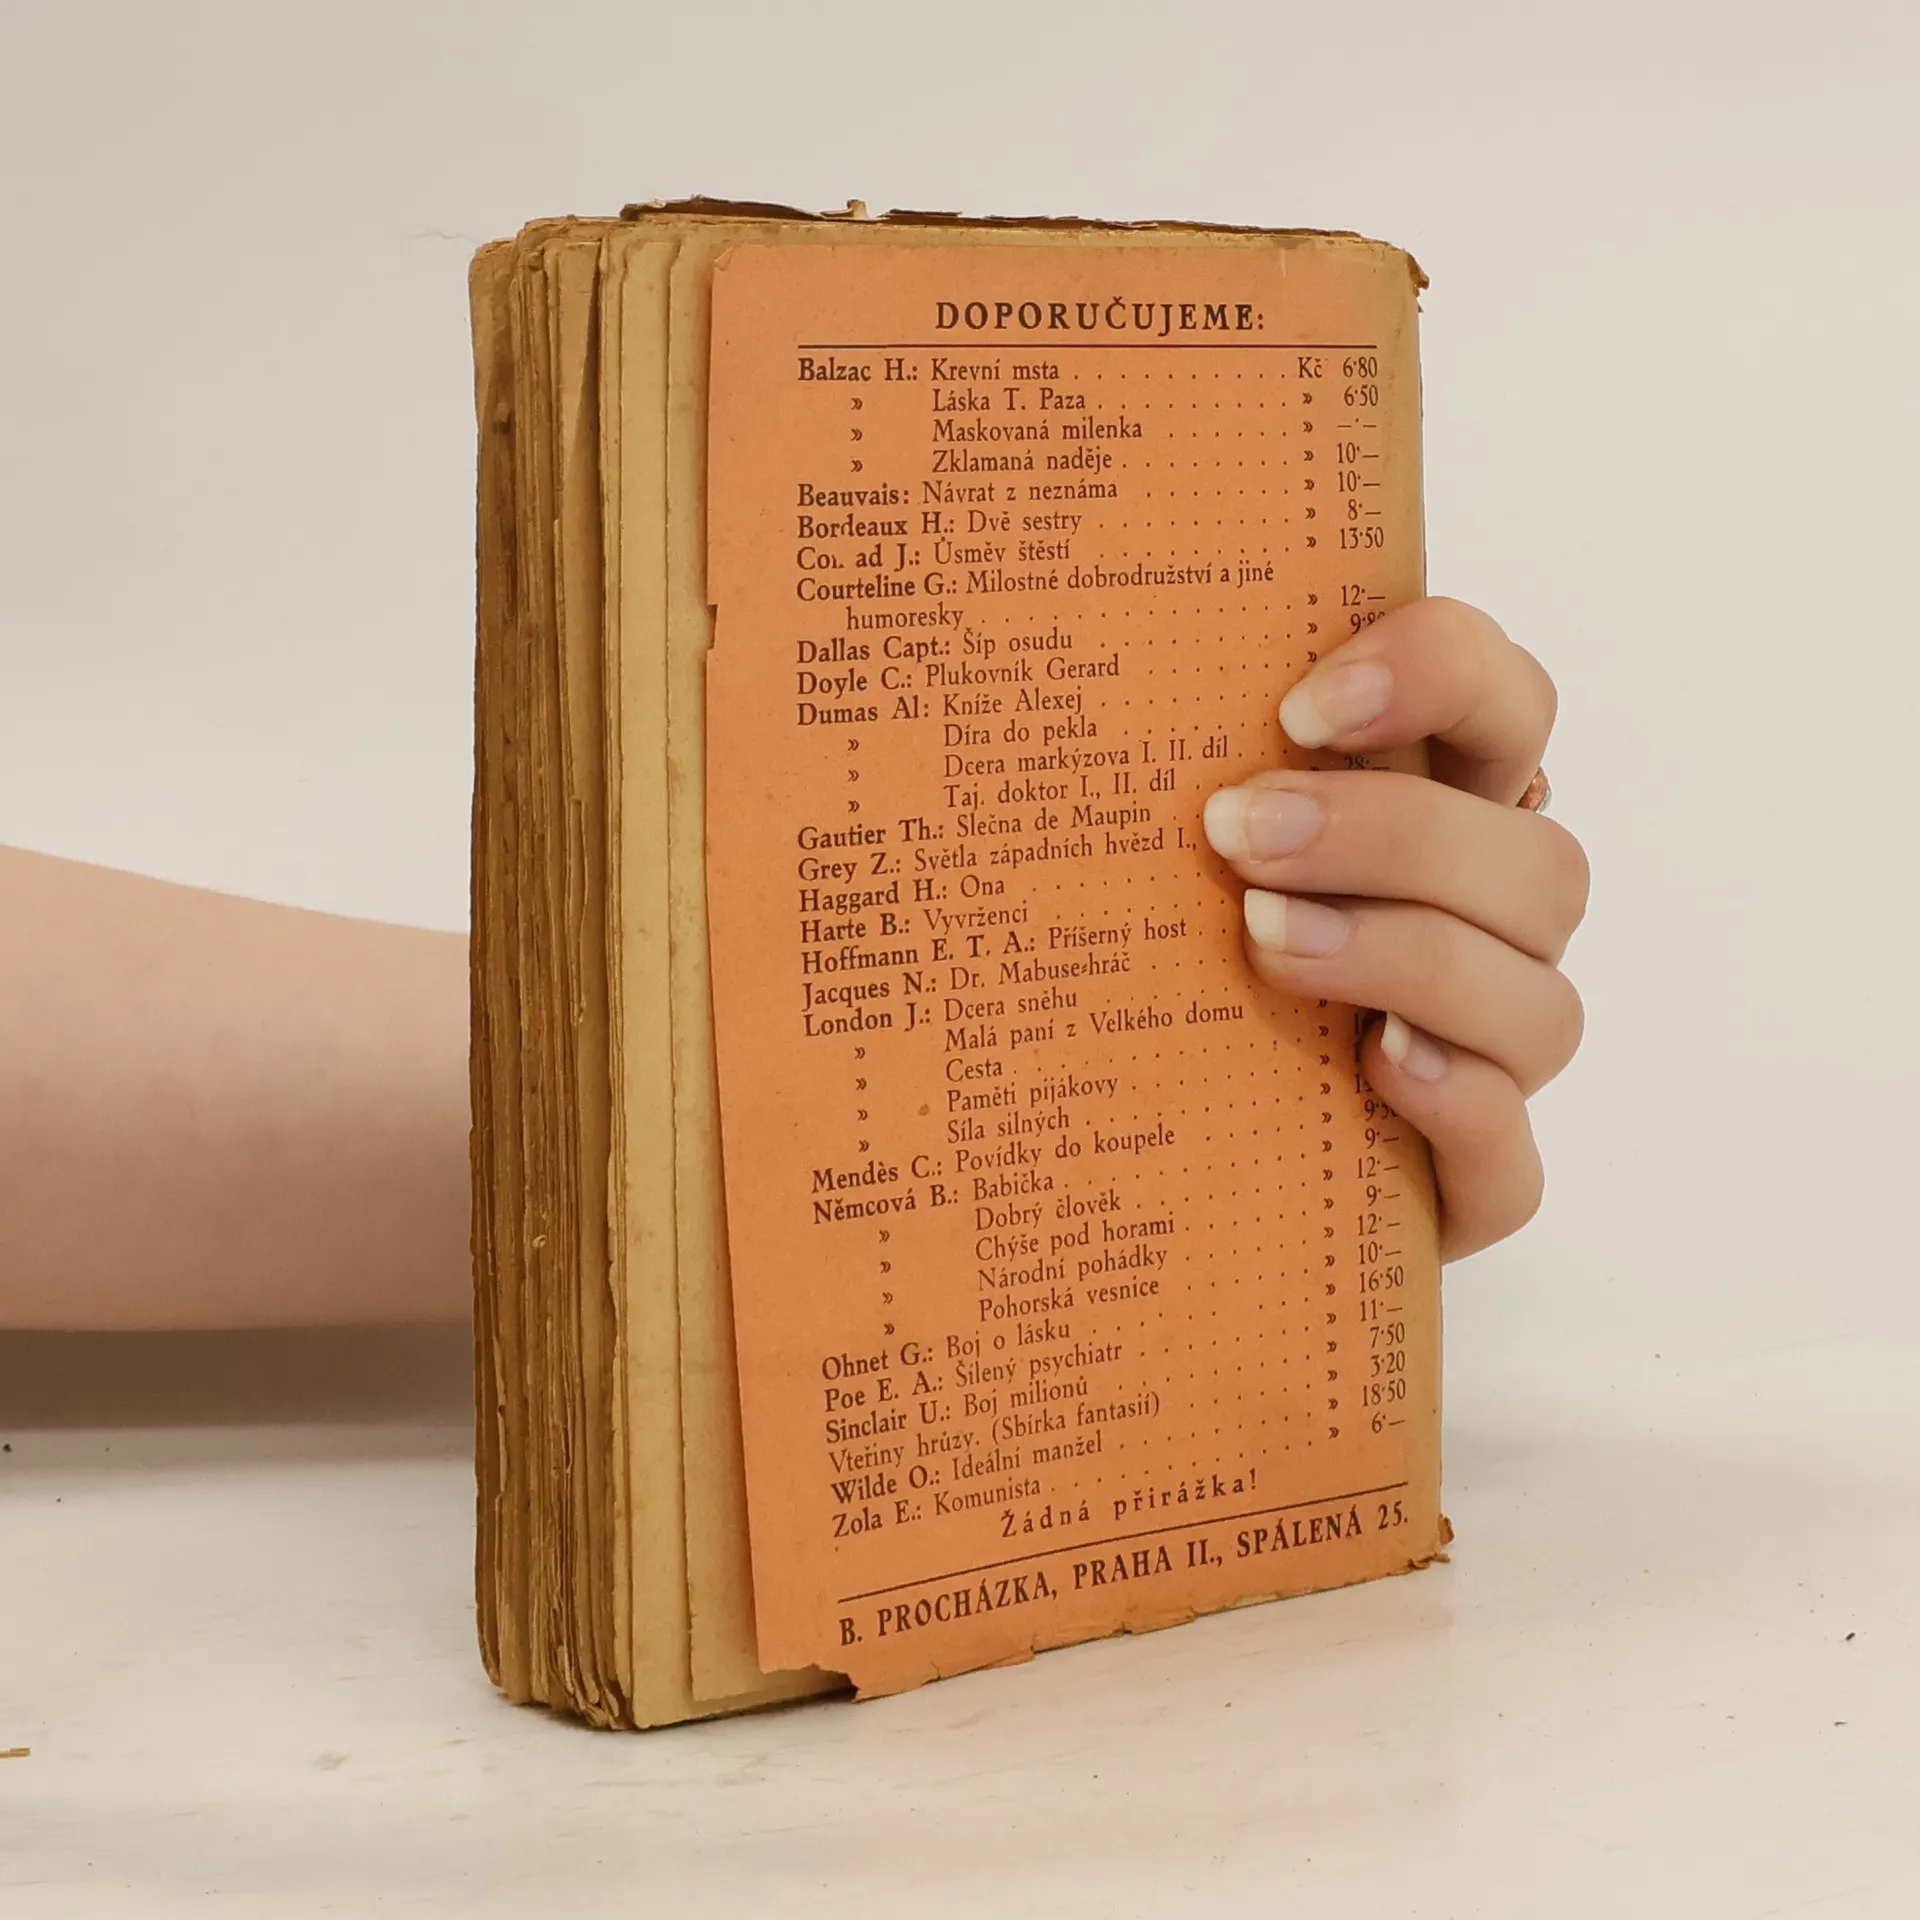 DOPORUČUJEME:
Balzac H.: Krevní msta . . . . . . . . . . Kč 6·80
» Láska T. Paza . . . . . . . . . » 6·50
» Maskovaná milenka . . . . . . » —·—
» Zklamaná naděje . . . . . . . . » 10·—
Beauvais: Návrat z neznáma . . . . . . . » 10·—
Bordeaux H.: Dvě sestry . . . . . . . . . » 8·—
ad J.: Úsměv štěstí . . . . . . . . . » 13·50
Courteline G.: Milostné dobrodružství a jiné
humoresky . . . . . . . . . . . . » 12·—
Dallas Capt.: Šíp osudu . . . . . . . . . »
Doyle C.: Plukovník Gerard . . . . . . . »
Dumas Al: Kníže Alexej . . . . . . . .
» Díra do pekla . . . . . .
» Dcera markýzova I. II. díl . .
» Taj. doktor I., II. díl . .
Gautier Th.: Slečna de Maupin . .
Grey Z.: Světla západních hvězd I.,
Haggard H.: Ona . . . . . . . .
Harte B.: Vyvrženci . . . . . . .
Hoffmann E. T. A.: Příšerný host . .
Jacques N.: Dr. Mabuse-hráč . . . .
London J.: Dcera sněhu . . . . . . . »
» Malá paní z Velkého domu . . »
» Cesta . . . . . . . . . . . »
» Paměti pijákovy . . . . . . . . »
» Síla silných . . . . . . . . . . »
Mendès C.: Povídky do koupele . . . . . » 9·—
Němcová B.: Babička . . . . . . . . . . » 12·—
» Dobrý člověk . . . . . . . . » 9·—
» Chýše pod horami . . . . . . » 12·—
» Národní pohádky . . . . . . » 10·—
» Pohorská vesnice . . . . . . » 16·50
Ohnet G.: Boj o lásku . . . . . . . . . » 11·—
Poe E. A.: Šílený psychiatr . . . . . . . . » 7·50
Sinclair U.: Boj milionů . . . . . . . . . » 3·20
Vteřiny hrůzy. (Sbírka fantasií) . . . . . . » 18·50
Wilde O.: Ideální manžel . . . . . . . . » 6·—
Zola E.: Komunista . . . . . . . . . .
Žádná přirážka!
B. PROCHÁZKA, PRAHA II., SPÁLENÁ 25.